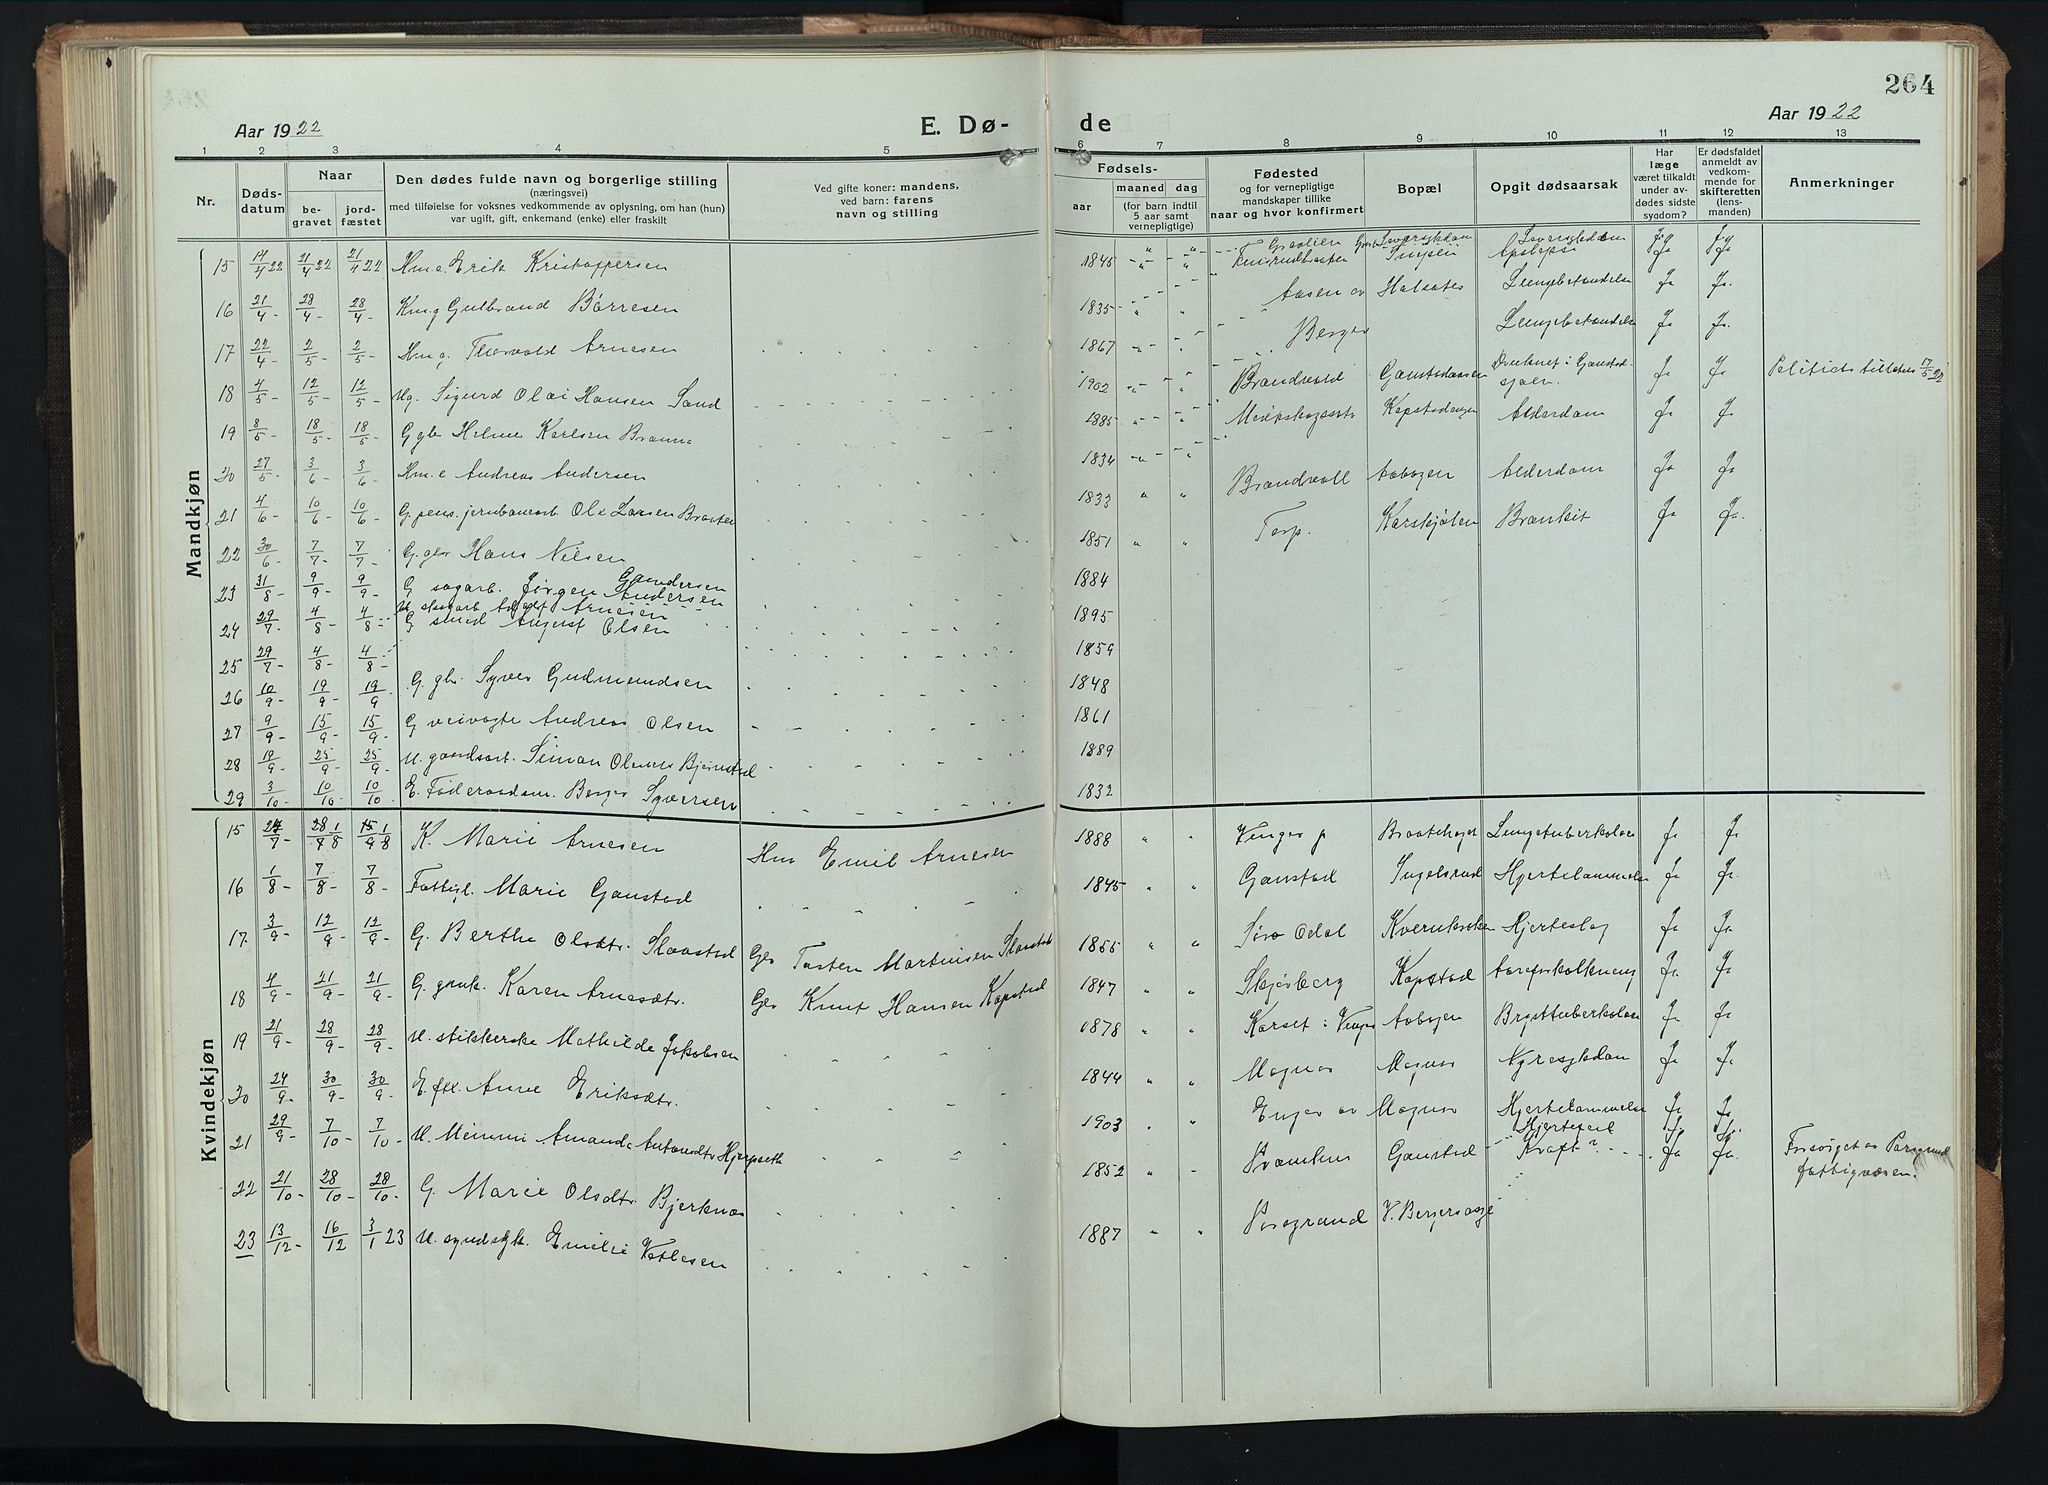 264
Aar 1922
E. Dø-
de
Aar 1922
1 2 3 4 5 6 7 8 9 10 11 12 13
Nr.
Døds-
datum
Naar
be-
gravet
jord-
fæstet
Den dødes fulde navn og borgerlige stilling
(næringsvei)
med tilføielse for voksnes vedkommende av oplysning, om han (hun)
var ugift, gift, enkemand (enke) eller fraskilt
Ved gifte koner: mandens,
ved barn: farens
navn og stilling
Fødsels-
aar
maaned
dag
(for barn indtil
5 aar samt
vernepligtige)
Fødested
og for vernepligtige
mandskaper tillike
naar og hvor konfirmert
Bopæl
Opgit dødsaarsak
Har
læge
været tilkaldt
under av-
dødes sidste
sygdom?
Er dødsfaldet
anmeldt av
vedkom-
mende for
skifteretten
(lens-
manden)
Anmerkninger
Mandkjøn
15 14/4 22 21/4 22 21/4 22 Hm. e. Erik Kristoffersen 1845 Apoplexi Ja Ja
16 21/4 - 28/4 - 28/4 - Hm g Gulbrand Børresen 1835 Aasen Lungebetændelse Ja Ja.
17 22/4 - 2/5 - 2/5 - Hm g. Thorvald Arnesen 1867 Berger Lungebetændelse Ja Ja.
18 4/5 - 12/5 - 12/5 - Ug. Sigurd Olai Hansen Sand 1902 Brandvold Druknet i Gaustad-
sjøen. Ja Ja Politiets tillatelse 17/5 22
19 8/5 - 18/5 - 18/5 - G gb Helmer Karlsen 1885 Kopstadengen Alderdom Ja Ja
20 27/5 - 3/6 - 3/6 - Hm. e Andreas Andersen 1834 Brandvoll Aabogen Alderdom Ja Ja
21 4/6 - 10/6 - 10/6 - G. pens. jernbanearb Ole Larsen Braaten 1833 Torp. Karskjølen Bronkit Ja Ja.
22 30/6 - 7/7 - 7/7 - G. gbr Hans Nilsen 1851
23 31/8 - 9/9 - 9/9 - G sagarb. Jørgen Gundersen
Andersen 1884
24 29/7 - 4/8 - 4/8 - U skogarb Adolf Arnesen 1895
25 29/7 - 4/8 - 4/8 - G smed August Olsen 1859
26 10/9 - 19/9 - 19/9 G. gbr. Syver Gudmundsen 1848
27 9/9 - 15/9 - 15/9 - G veivogte Andreas Olsen 1861
28 19/9 - 25/9 - 25/9 - U. gaardsarb. Simon Olausen Bjørnstad 1889
29 3/10 - 10/10 - 10/10 E. Føderaadsm. Berger Syversen 1832
Kvindekjøn
15 24/7 - 1/8 1/8 K. Marie Arnesen Hm Emil Arnesen 1888 Vinger p Braatehaget Lungetuberkolose Ja Ja
16 1/8 - 7/8 - 7/8 - Fattigl. Marie Gaustad 1845 Gaustad Ingelsrud Hjertelammelse Ja Ja.
17 3/9 - 12/9 - 12/9 - G. Berthe Olsdtr. Slaastad Gbr Tosten Martinsen Slaastad 1855 Søro Odal Hjerteslag Ja Ja
18 4/9 - 21/9 - 21/9 - G. gmk. Karen Arnesdtr. Gbr Knut Hansen Kopstad 1847 Skjeberg Kopstad Aareforkalkning Ja Ja
19 21/9 - 28/9 - 28/9 - U. stikkerske Mathilde Jakobsen 1878 Korset i Vinger Aabogen Brysttuberkolose Ja Ja
20 24/9 - 30/9 - 30/9 - E. fkl. Anne Eriksdtr. 1844 Magnor Magnor Nyresykdom Ja Ja
21 29/9 - 7/10 - 7/10 - U. Mimmi Amanda Antonsdtr Hjerpseth 1903 Enger av Magnor Hjertelammelse Ja Ja.
22 21/10 - 28/10 - 28/10 - G. Marie Olsdtr. Bjerknes 1852 Gaustad Hjertefeil
Kraft? Ja Ja. Forsørget av Porsgrund
fattigvæsen.
23 13/12 - 16/12 3/1 23 U. Emilie Vetlesen 1887 Porsgrund V. Bergersasje